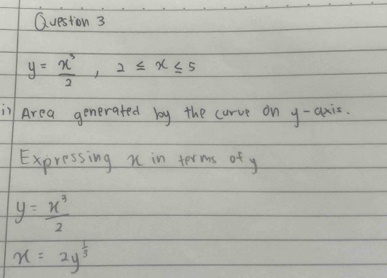 Question 3
y = x³/2 , 2 ≤ x ≤ 5
i) Area generated by the curve on y-axis.
Expressing x in terms of y
y = x³/2
x = 2y^(1/3)